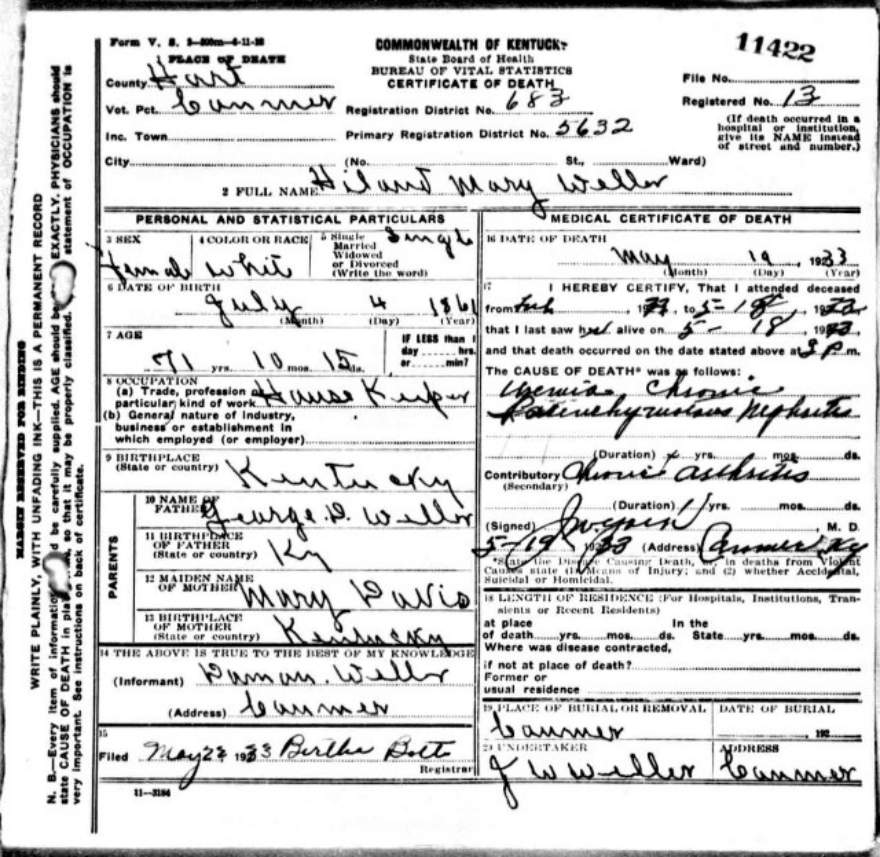 Form V. S. 3-500m-4-11-28
COMMONWEALTH OF KENTUCKY
State Board of Health
BUREAU OF VITAL STATISTICS
CERTIFICATE OF DEATH
11422
PLACE OF DEATH
County Hart
Vot. Pct. Canmer
Inc. Town
City
Registration District No. 683
Primary Registration District No. 5632
(No. St., Ward)
File No.
Registered No. 13
(If death occurred in a
hospital or institution,
give its NAME instead
of street and number.)
2 FULL NAME Mary Weller
PERSONAL AND STATISTICAL PARTICULARS
3 SEX
female
4 COLOR OR RACE
Whit
5 Single
Married
Widowed
or Divorced
(Write the word)
Single
6 DATE OF BIRTH
July 4 1861
(Month) (Day) (Year)
7 AGE
71 yrs. 10 mos. 15 ds.
IF LESS than 1
day hrs.
or min?
8 OCCUPATION
(a) Trade, profession or
particular kind of work House Keeper
(b) General nature of industry,
business or establishment in
which employed (or employer)
9 BIRTHPLACE
(State or country) Kentucky
PARENTS
10 NAME OF
FATHER George D. Weller
11 BIRTHPLACE
OF FATHER
(State or country) Ky
12 MAIDEN NAME
OF MOTHER Mary Davis
13 BIRTHPLACE
OF MOTHER
(State or country) Kentucky
14 THE ABOVE IS TRUE TO THE BEST OF MY KNOWLEDGE
(Informant) Weller
(Address) Canmer
15
Filed May 22 1933 Birtha
Registrar
11-3184
MEDICAL CERTIFICATE OF DEATH
16 DATE OF DEATH
May 19, 1933
(Month) (Day) (Year)
17 I HEREBY CERTIFY, That I attended deceased
from , to 5-18,
that I last saw her alive on 5-18,
and that death occurred on the date stated above at P m.
The CAUSE OF DEATH* was as follows:
Uremia Chronic
Parenchymatous Nephritis
(Duration) yrs. mos. ds.
Contributory Chronic Arthritis
(Secondary)
(Duration) yrs. mos. ds.
(Signed) , M. D.
5-19, 1933 (Address) Canmer Ky
*State the Disease Causing Death, or, in deaths from Violent
Causes state (1) Means of Injury; and (2) whether Accidental,
Suicidal or Homicidal.
18 LENGTH OF RESIDENCE (For Hospitals, Institutions, Tran-
sients or Recent Residents)
at place In the
of death yrs. mos. ds. State yrs. mos. ds.
Where was disease contracted,
if not at place of death?
Former or
usual residence
19 PLACE OF BURIAL OR REMOVAL
Canmer
DATE OF BURIAL
, 192
20 UNDERTAKER
J W Weller
ADDRESS
Canmer
MARGIN RESERVED FOR BINDING
WRITE PLAINLY, WITH UNFADING INK—THIS IS A PERMANENT RECORD
N. B.—Every item of information be carefully supplied. AGE should be EXACTLY. PHYSICIANS should
state CAUSE OF DEATH in so that it may be properly classified. statement of OCCUPATION is
very important. See instructions on back of certificate.